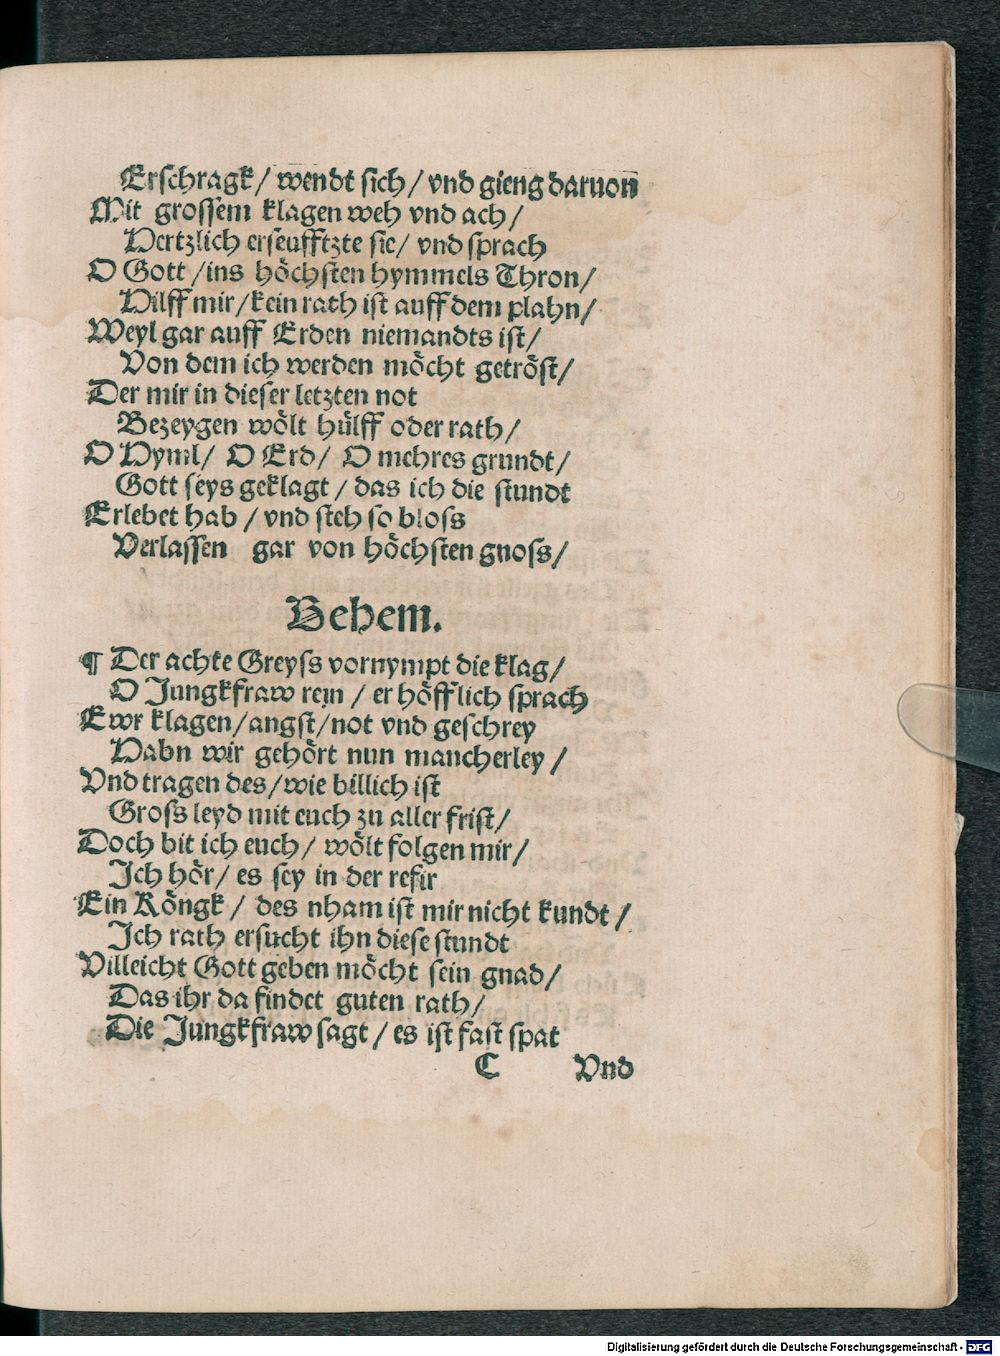 Erschragk / wendt sich / vnd gieng daruon
Mit grossem klagen weh vnd ach /
Hertzlich erseufftzte sie / vnd sprach
O Gott / ins höchsten hymmels Thron /
Hilff mir / kein rath ist auff dem plahn /
Weyl gar auff Erden niemandts ist /
Von dem ich werden möcht getröst /
Der mir in dieser letzten not
Bezeygen wölt hülff oder rath /
O Hyml / O Erd / O mehres grundt /
Gott seys geklagt / das ich die stundt
Erlebet hab / vnd steh so bloss
Verlassen gar von höchsten gnoss /
Behem.
¶ Der achte Greyss vornympt die klag /
O Jungkfraw rein / er höfflich sprach
Ewr klagen / angst / not vnd geschrey
Habn wir gehört nun mancherley /
Vnd tragen des / wie billich ist
Gross leyd mit euch zu aller frist /
Doch bit ich euch / wölt folgen mir /
Ich hör / es sey in der refir
Ein Köngk / des nham ist mir nicht kundt /
Ich rath ersucht ihn diese stundt
Villeicht Gott geben möcht sein gnad /
Das ihr da findet guten rath /
Die Jungkfraw sagt / es ist fast spat
C Vnd
Digitalisierung gefördert durch die Deutsche Forschungsgemeinschaft - DFG